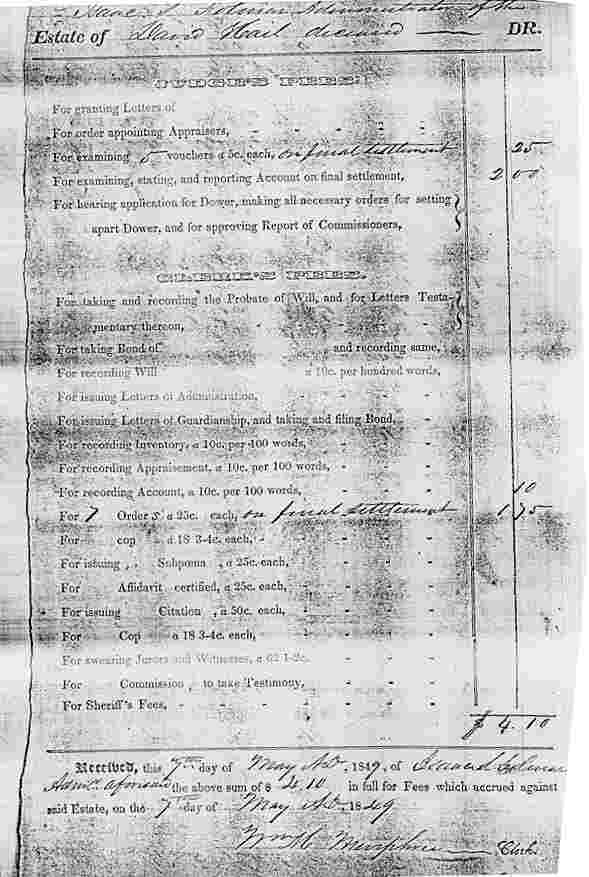 Isaac S. Administrator of the
Estate of David Hail deceased DR.
JUDGE'S FEES.
For granting Letters of
For order appointing Appraisers, - - - -
For examining 5 vouchers a 5c. each, on final settlement 25
For examining, stating, and reporting Account on final settlement, 2 00
For hearing application for Dower, making all necessary orders for setting
apart Dower, and for approving Report of Commissioners,
CLERK'S FEES.
For taking and recording the Probate of Will, and for Letters Testa-
mentary thereon, - - - -
For taking Bond of and recording same,
For recording Will a 10c. per hundred words,
For issuing Letters of Administration, - - - -
For issuing Letters of Guardianship, and taking and filing Bond, -
For recording Inventory, a 10c. per 100 words, - - - -
For recording Appraisement, a 10c. per 100 words, - - - -
For recording Account, a 10c. per 100 words, - - - - 10
For 7 Orders a 25c. each, on final settlement 1 75
For cop a 18 3-4c. each, - - - -
For issuing Subpœna , a 25c. each, - - -
For Affidavit certified, a 25c. each, - - -
For issuing Citation , a 50c. each, - - - -
For Cop a 18 3-4c. each, - - - -
For swearing Jurors and Witnesses, a 62 1-2c. - - -
For Commission, to take Testimony, - - -
For Sheriff's Fees, - - - - - -
$ 4.10
Received, this 7th day of May AD, 1849, of Isaac S.
Admr. aforesaid the above sum of $ 4.10 in full for Fees which accrued against
said Estate, on the 7th day of May AD, 1849
Wm Clerk.